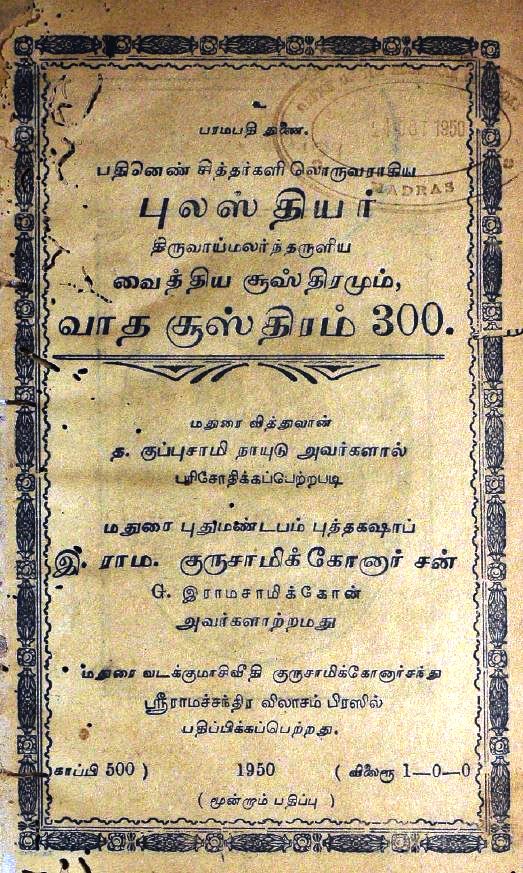 உ
பரமபதி துணை.
பதினெண் சித்தர்களி லொருவராகிய
புலஸ்தியர்
திருவாய்மலர்ந்தருளிய
வைத்திய சூஸ்திரமும்,
வாத சூஸ்திரம் 300.
மதுரை வித்துவான்
த. குப்புசாமி நாயுடு அவர்களால்
பரிசோதிக்கப்பெற்றபடி
மதுரை புதுமண்டபம் புத்தகஷாப்
இ. ராம. குருசாமிக்கோனார் சன்
G. இராமசாமிக்கோன்
அவர்களாற்றமது
மதுரை வடக்குமாசிவீதி குருசாமிக்கோனார்சந்து
ஸ்ரீராமச்சந்திர விலாசம் பிரஸில்
பதிப்பிக்கப்பெற்றது.
காப்பி 500 ) 1950 ( விலை ரூ 1—0—0
( மூன்றும் பதிப்பு )
1950
MADRAS